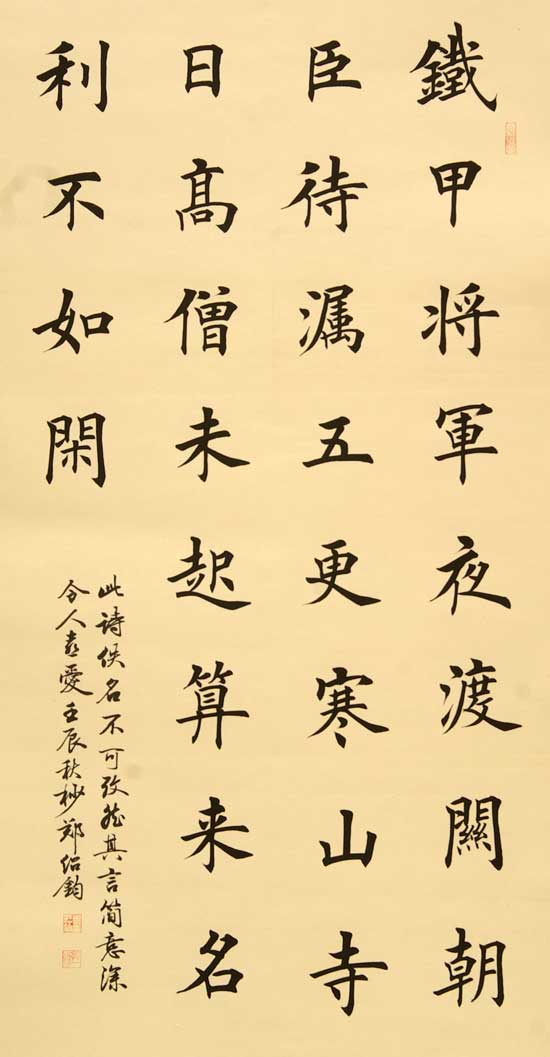 鐵甲将軍夜渡關朝
臣待漏五更寒山寺
日高僧未起算来名
利不如閑
此诗佚名不可攷然其言简意深
令人喜愛壬辰秋杪郑绍鈞